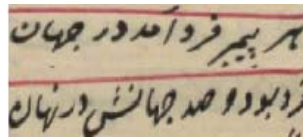 هر پیمبر فرد آمد در جهان
فرد بود و صد جهانش در نهان